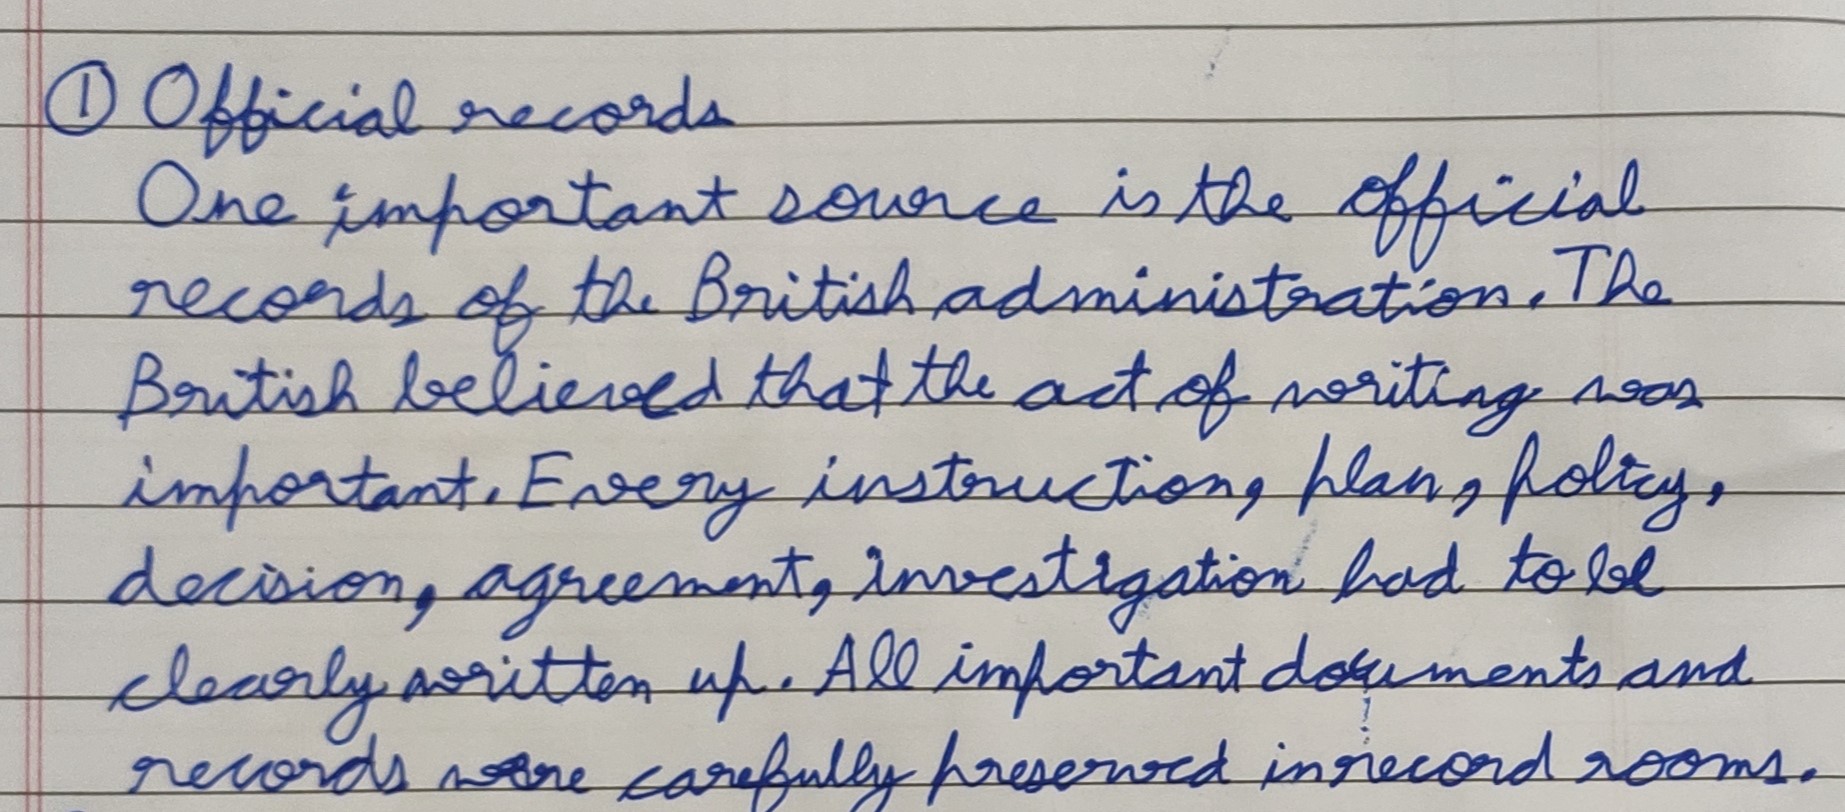 ① Official records
One important source is the official
records of the British administration. The
British believed that the act of writing was
important. Every instruction, plan, policy,
decision, agreement, investigation had to be
clearly written up. All important documents and
records were carefully preserved in record rooms.